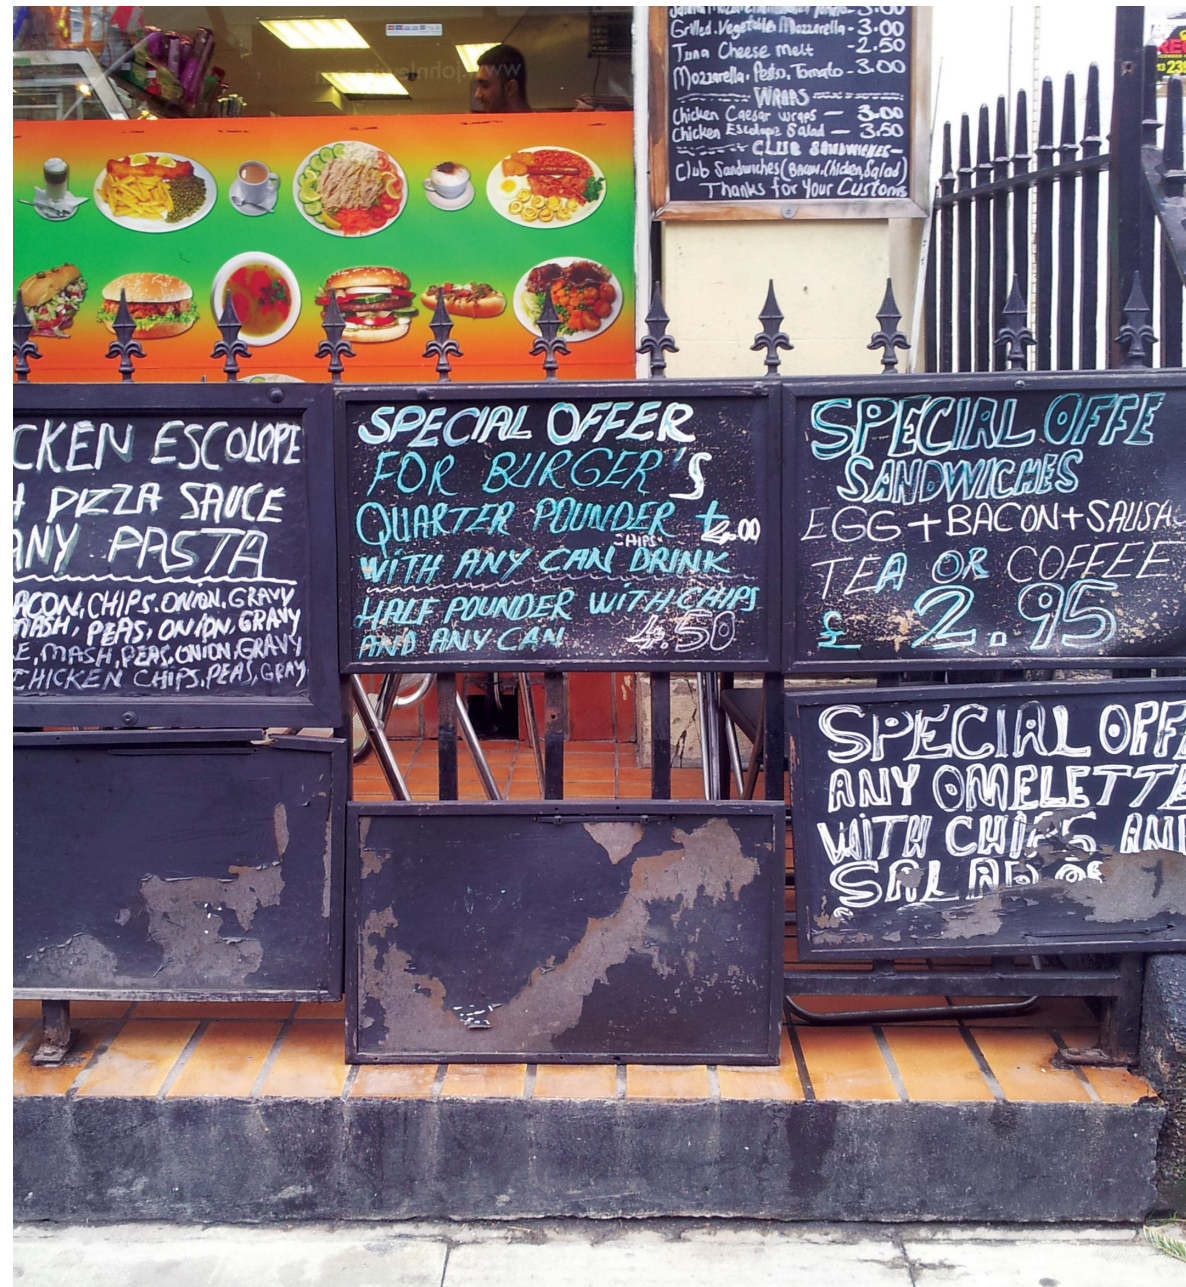 Grilled Vegetable Mozzarella - 3.00
Tuna Cheese melt - 2.50
Mozzarella, Pesto, Tomato - 3.00
WRAPS
Chicken Caesar wraps - 3.00
Chicken Escolope Salad - 3.50
CLUB SANDWICHES
Club Sandwiches (Bacon, Chicken, Salad)
Thanks for Your Customs
CKEN ESCOLOPE
H PIZZA SAUCE
ANY PASTA
ACON, CHIPS, ONION, GRAVY
MASH, PEAS, ONION, GRAVY
E, MASH, PEAS, ONION, GRAVY
CHICKEN CHIPS, PEAS, GRAY
SPECIAL OFFER
FOR BURGER'S
QUARTER POUNDER +
CHIPS
WITH ANY CAN DRINK
HALF POUNDER WITH CHIPS
AND ANY CAN 4.50
SPECIAL OFFE
SANDWICHES
EGG + BACON + SAUSA
TEA OR COFFEE
£ 2.95
SPECIAL OFF
ANY OMELETTE
WITH CHIPS AND
SALAD